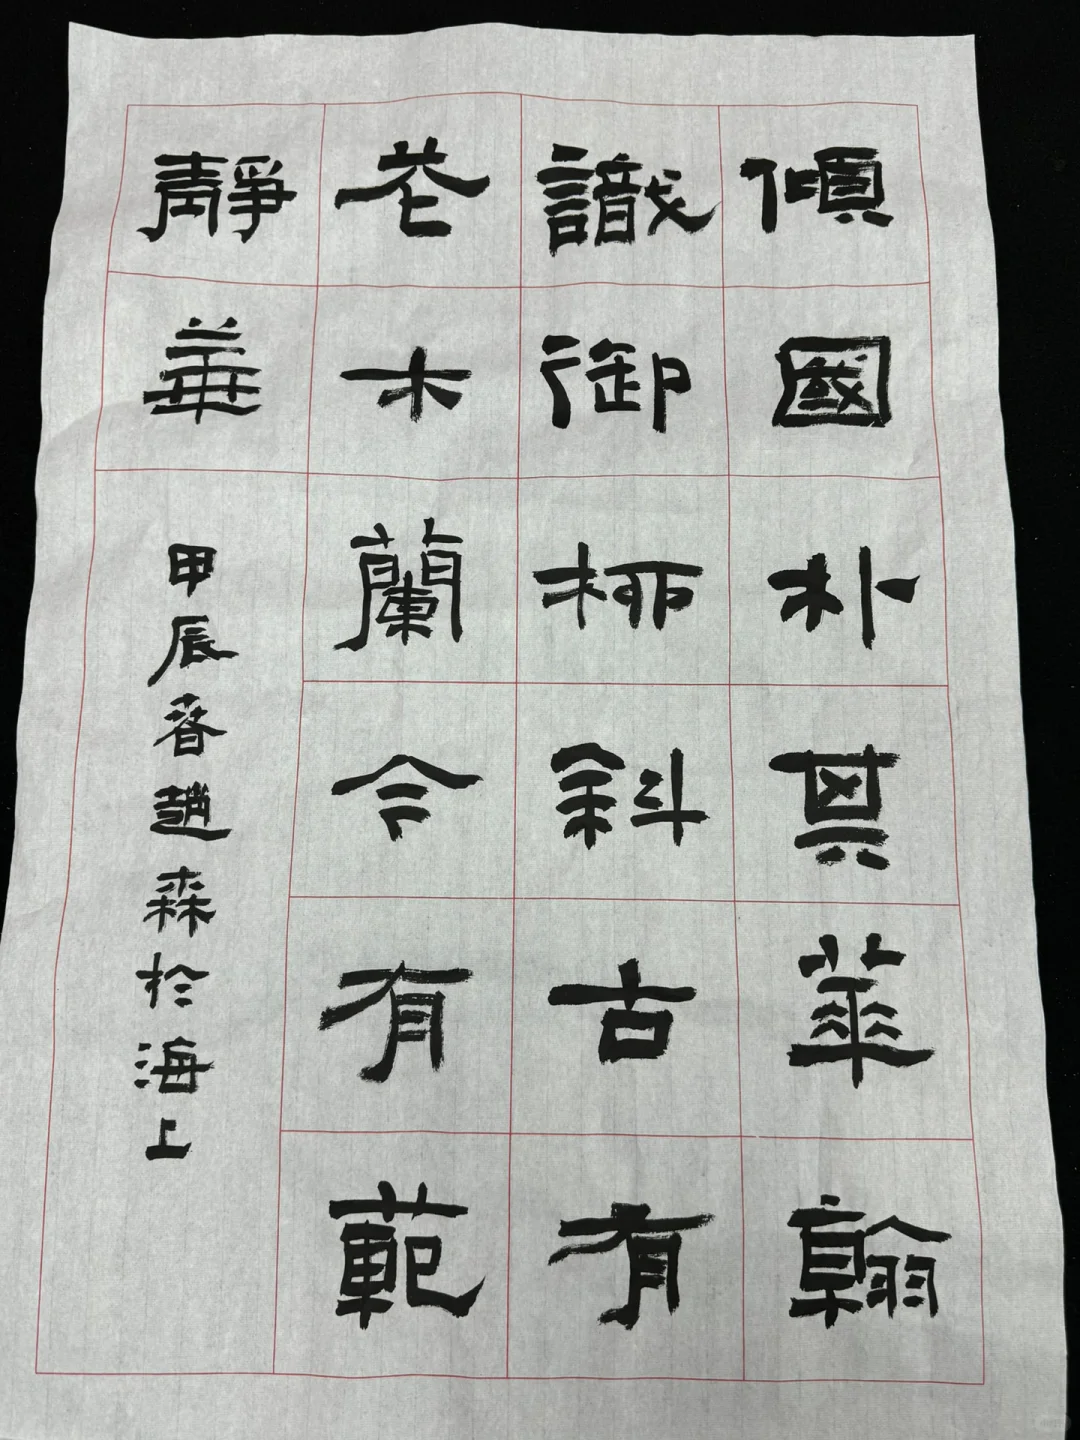 傾國朴其華翰
識御柳斜古有
花木蘭今有範
靜華
甲辰春趙森於海上